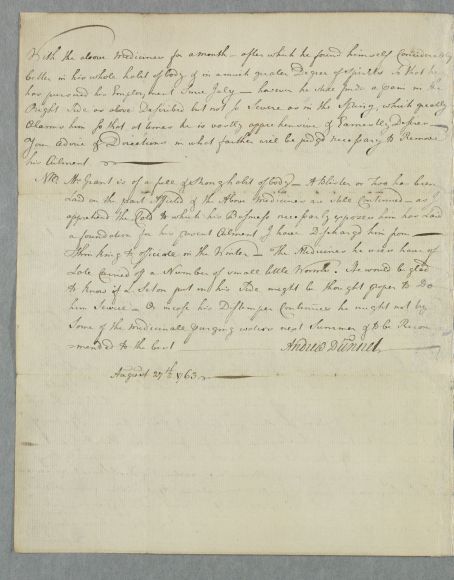 With the above Medicines for a month – after which he found himself Considerably
better in his whole habit of body & in a much greater Degree of Spirits So that he
has pursued his Employment Since July – however he still finds a pain in the
Right Side as above Described but not so Severe as in the Spring, which greatly
Alarms him So that at times he is vastly apprehensive & Earnestly Desires
Your advice & Directions in what farther will be judged necessary to Remove
his Ailment
NB Mr Grant is of a full & Strong habit of body – A Blister or Two has been
Laid on the part Affected & the Above Medicines are still Continued – as I
apprehend the Cold to which his Business necessarly exposes him has Laid
a foundation for his present Ailment I have Discharged him from
thinking to officiate in the Winter – The Medicines he uses have of
Late Carried of a Number of small little Worms. He would be glad
to know if a Seton put in his Side might be thought proper to Do
him Service – Or incase his Distemper Continues he might not try
Some of the Medicinall purging waters next Summer & to be Recom
=mended to the best Andrew Dunnet
August 27th 1763